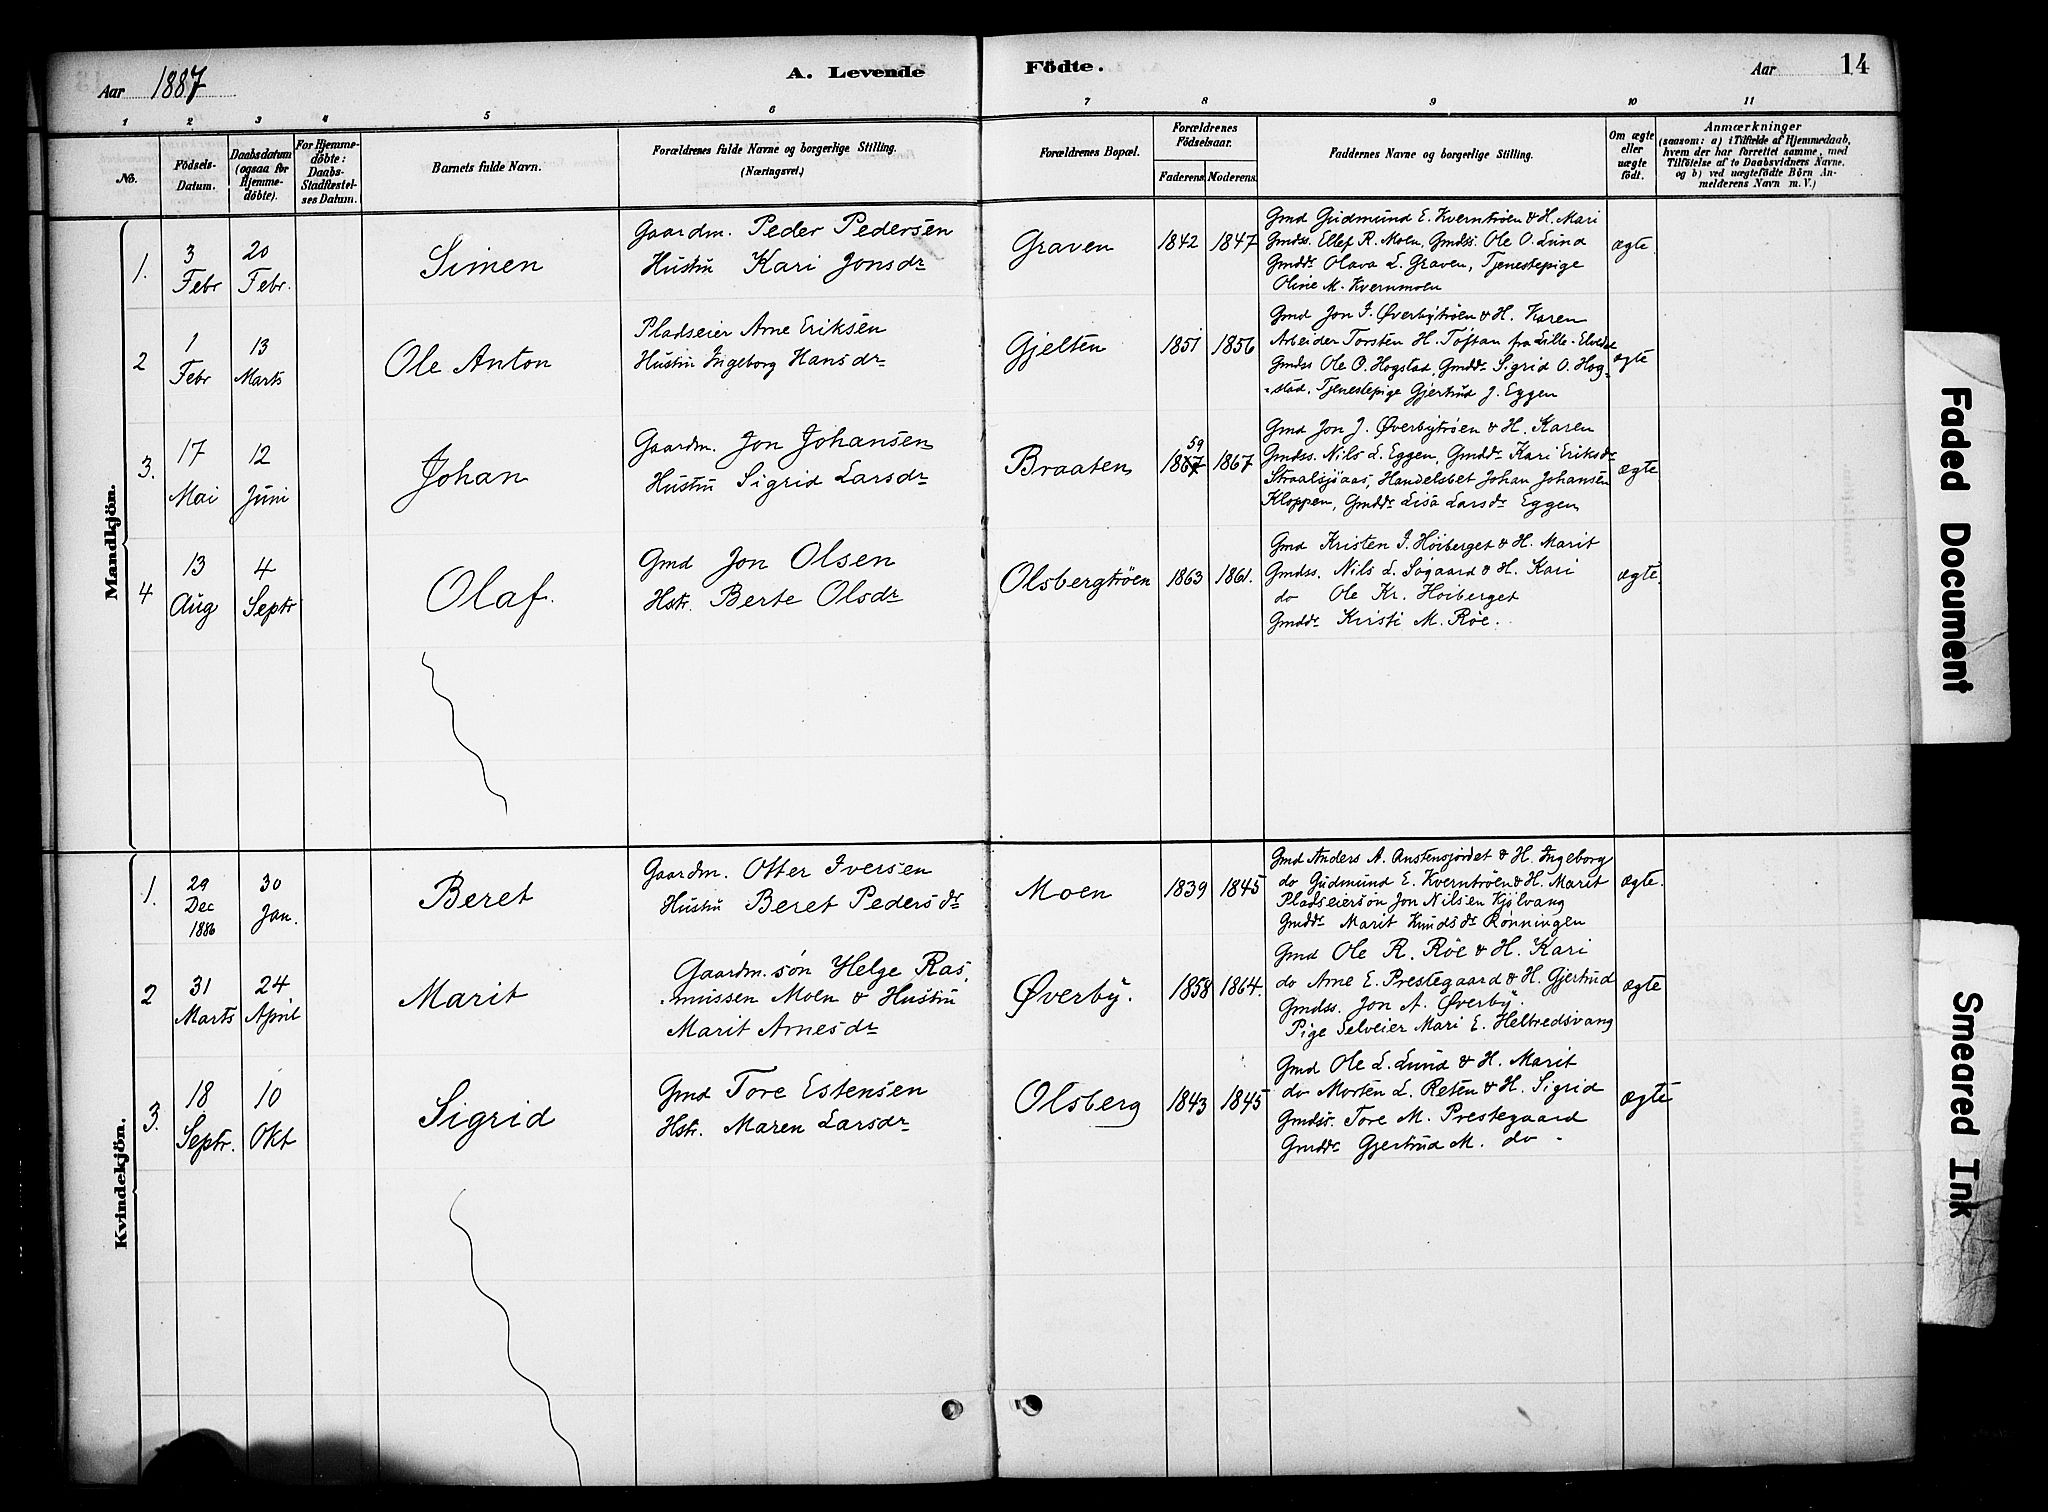 Aar 1887
A. Levende
Födte.
Aar
14
1 2 3 4 5 6 7 8 9 10 11
No.
Födsels-Datum.
Daabsdatum (ogsaa for Hjemmedöbte).
For Hjemmedöbte: Daabs-Stadfæstelses Datum.
Barnets fulde Navn.
Forældrenes fulde Navne og borgerlige Stilling. (Næringsvei.)
Forældrenes Bopæl.
Forældrenes Födselsaar.
Faderens. Moderens.
Faddernes Navne og borgerlige Stilling.
Om ægte eller uægte födt.
Anmærkninger
(saasom: a) i Tilfælde af Hjemmedaab, hvem der har forrettet samme, med Tilföielse af to Daabsvidners Navne, og b) ved uægtefödte Börn Anmelderens Navn m. V.)
Mandkjön.
1.
3 Febr
20 Febr.
Simen
Gaardm. Peder Pedersen
Hustru Kari Jonsdr
Graven
1842
1847
Gmd Gudmund E. Kverntrøen & H. Mari
Gmdss. Ellef R. Moen, Gmdss. Ole O. Lund
Gmdd. Olava L. Graven, Tjenestepige
Oline M. Kvernmoen
ægte.
2
1 Febr
13 Marts
Ole Anton
Pladseier Arne Eriksen
Hustru Ingeborg Hansdr
Gjelten
1851
1856
Gmd Jon J. Øverbytrøen & H. Karen
Arbeider Torsten H. Toftan fra Lille-Elvdal
Gmdss Ole O. Hogstad, Gmdd. Sigrid O. Hog-
-stad. Tjenestepige Gjertrud J. Eggen
ægte
3.
17 Mai
12 Juni
Johan
Gaardm. Jon Johansen
Hustru Sigrid Larsdr
Braaten
59
1867
1867
Gmd Jon J. Øverbytrøen & H. Karen
Gmdss. Nils L. Eggen, Gmdd. Kari Eriksdr
Straalsjøaas, Handelsbet Johan Johansen
Kloppen, Gmdd. Lisa Larsdr Eggen
ægte
4
13 Aug
4 Septr
Olaf.
Gmd Jon Olsen
Hstr. Berte Olsdr
Olsbergtrøen
1863
1861.
Gmd Kristen J. Hoiberget & H. Marit
Gmdss. Nils L. Søgaard & H. Kari
do Ole Kr. Hoiberget
Gmdd. Kirsti M. Røe.
ægte.
Kvindekjön.
1.
29 Dec 1886
30 Jan.
Beret
Gaardm. Otter Iversen
Hustru Beret Pedersdr
Moen
1839
1845
Gmd Anders A. Austensjordet & H. Ingeborg
do Gudmund E. Kverntrøen & H. Marit
Pladseiersøn Jon Nilsen Kjølvang
Gmdd. Marit Knudsdr Rønningen
ægte.
2
31 Marts
24 April
Marit
Gaardm.søn Helge Ras-
-mussen Moen & Hustru
Marit Arnesdr
Øverby.
1858
1864.
Gmd Ole R. Røe & H. Kari
do Arne E. Prestegaard & H. Gjertrud
Gmdss. Jon A. Øverby.
Pige Selveier Mari E. Heltredsvang
ægte
3.
18 Septr.
10 Okt
Sigrid
Gmd Tore Estensen
Hstr. Maren Larsdr
Olsberg
1843
1845
Gmd Ole L. Lund & H. Marit
do Morten L. Reten & H. Sigrid
Gmdss. Tore M. Prestegaard
Gmdd. Gjertrud M. do -
ægte
Faded Document
Smeared Ink